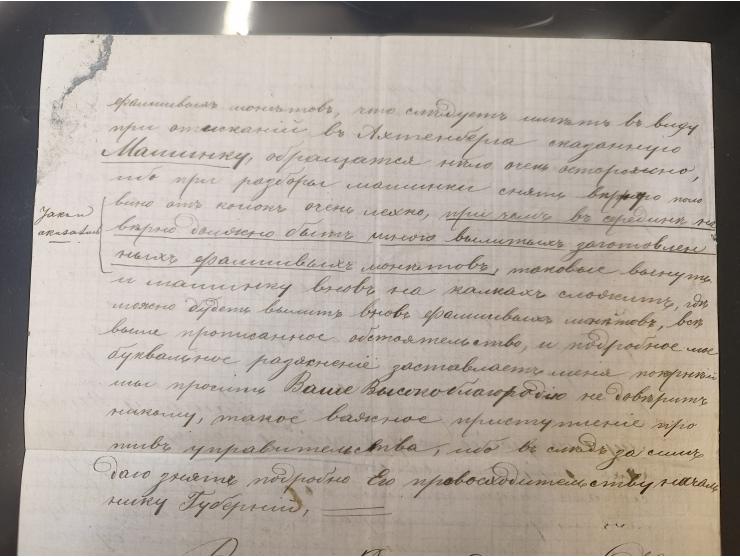 фальшивыхъ монѣтовъ, что слѣдуетъ имѣть въ виду
при отисканій въ Ахтенберга сказанную
Машинку, обращатся нало очень осторожно,
ибо при разборы машинки снять верхую поло
вино отъ колокъ очень лехко, при чемъ въ срединѣ на
вѣрно должно быть много вылитыхъ заготовлен
ныхъ фальшивыхъ монѣтовъ, таковые вынуть
и машинку вновь на калкахъ сложить, гдѣ
можно будетъ вылить вновь фальшивыхъ монѣтовъ, всѣ
выше прописанное обстоятельство, и подробное мое
буквальное разяснение заставлаетъ меня покорнѣй
ше просить Ваше Высокоблагородію не довѣрить
никому, такое важное приступление про
тивъ управительства, ибо въ слѣдъ за симъ
даю знать подробно Его превосходительству началь
нику Губерній,